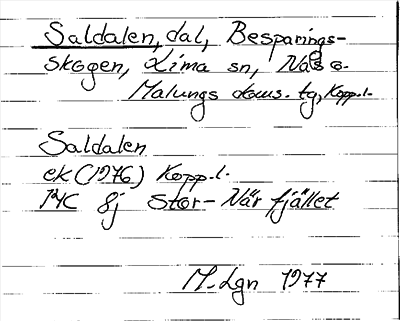 Saldalen, dal, Besparings-
skogen, Lima sn, Nås o.
Malungs doms. tg, Kopp.l.
Saldalen
ek (1976) Kopp.l.
14C 8j Stor-Närfjället
M-Lgn 1977